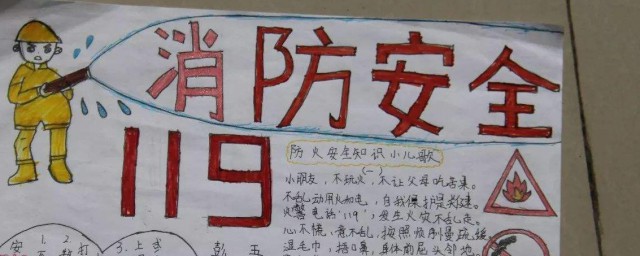 消防安全
119
防火安全知识小儿歌
(一)
小朋友，不玩火，不让父母吃苦果。
不乱动用火和电，自我保护是关键。
火警电话'119'，发生火灾不乱走。
心不慌，意不乱，按照规则
湿毛巾，捂口鼻，身体前屈头邻地
安 1. 2. 打
3. 上